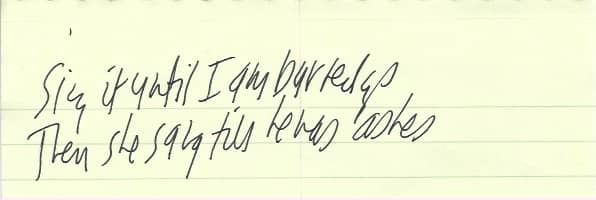 Sing it until I am burned up
Then she sang till he was ashes